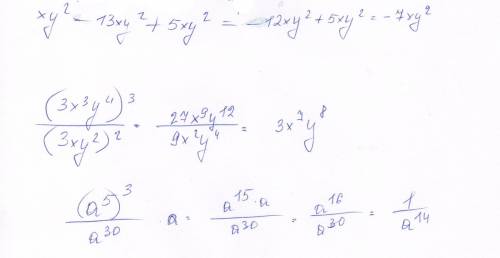 xy² - 13xy² + 5xy² = -12xy² + 5xy² = -7xy²
(3x³y⁴)³/(3xy²)² = 27x⁹y¹²/9x²y⁴ = 3x⁷y⁸
(a⁵)³/a³⁰ · a = a¹⁵·a/a³⁰ = a¹⁶/a³⁰ = 1/a¹⁴